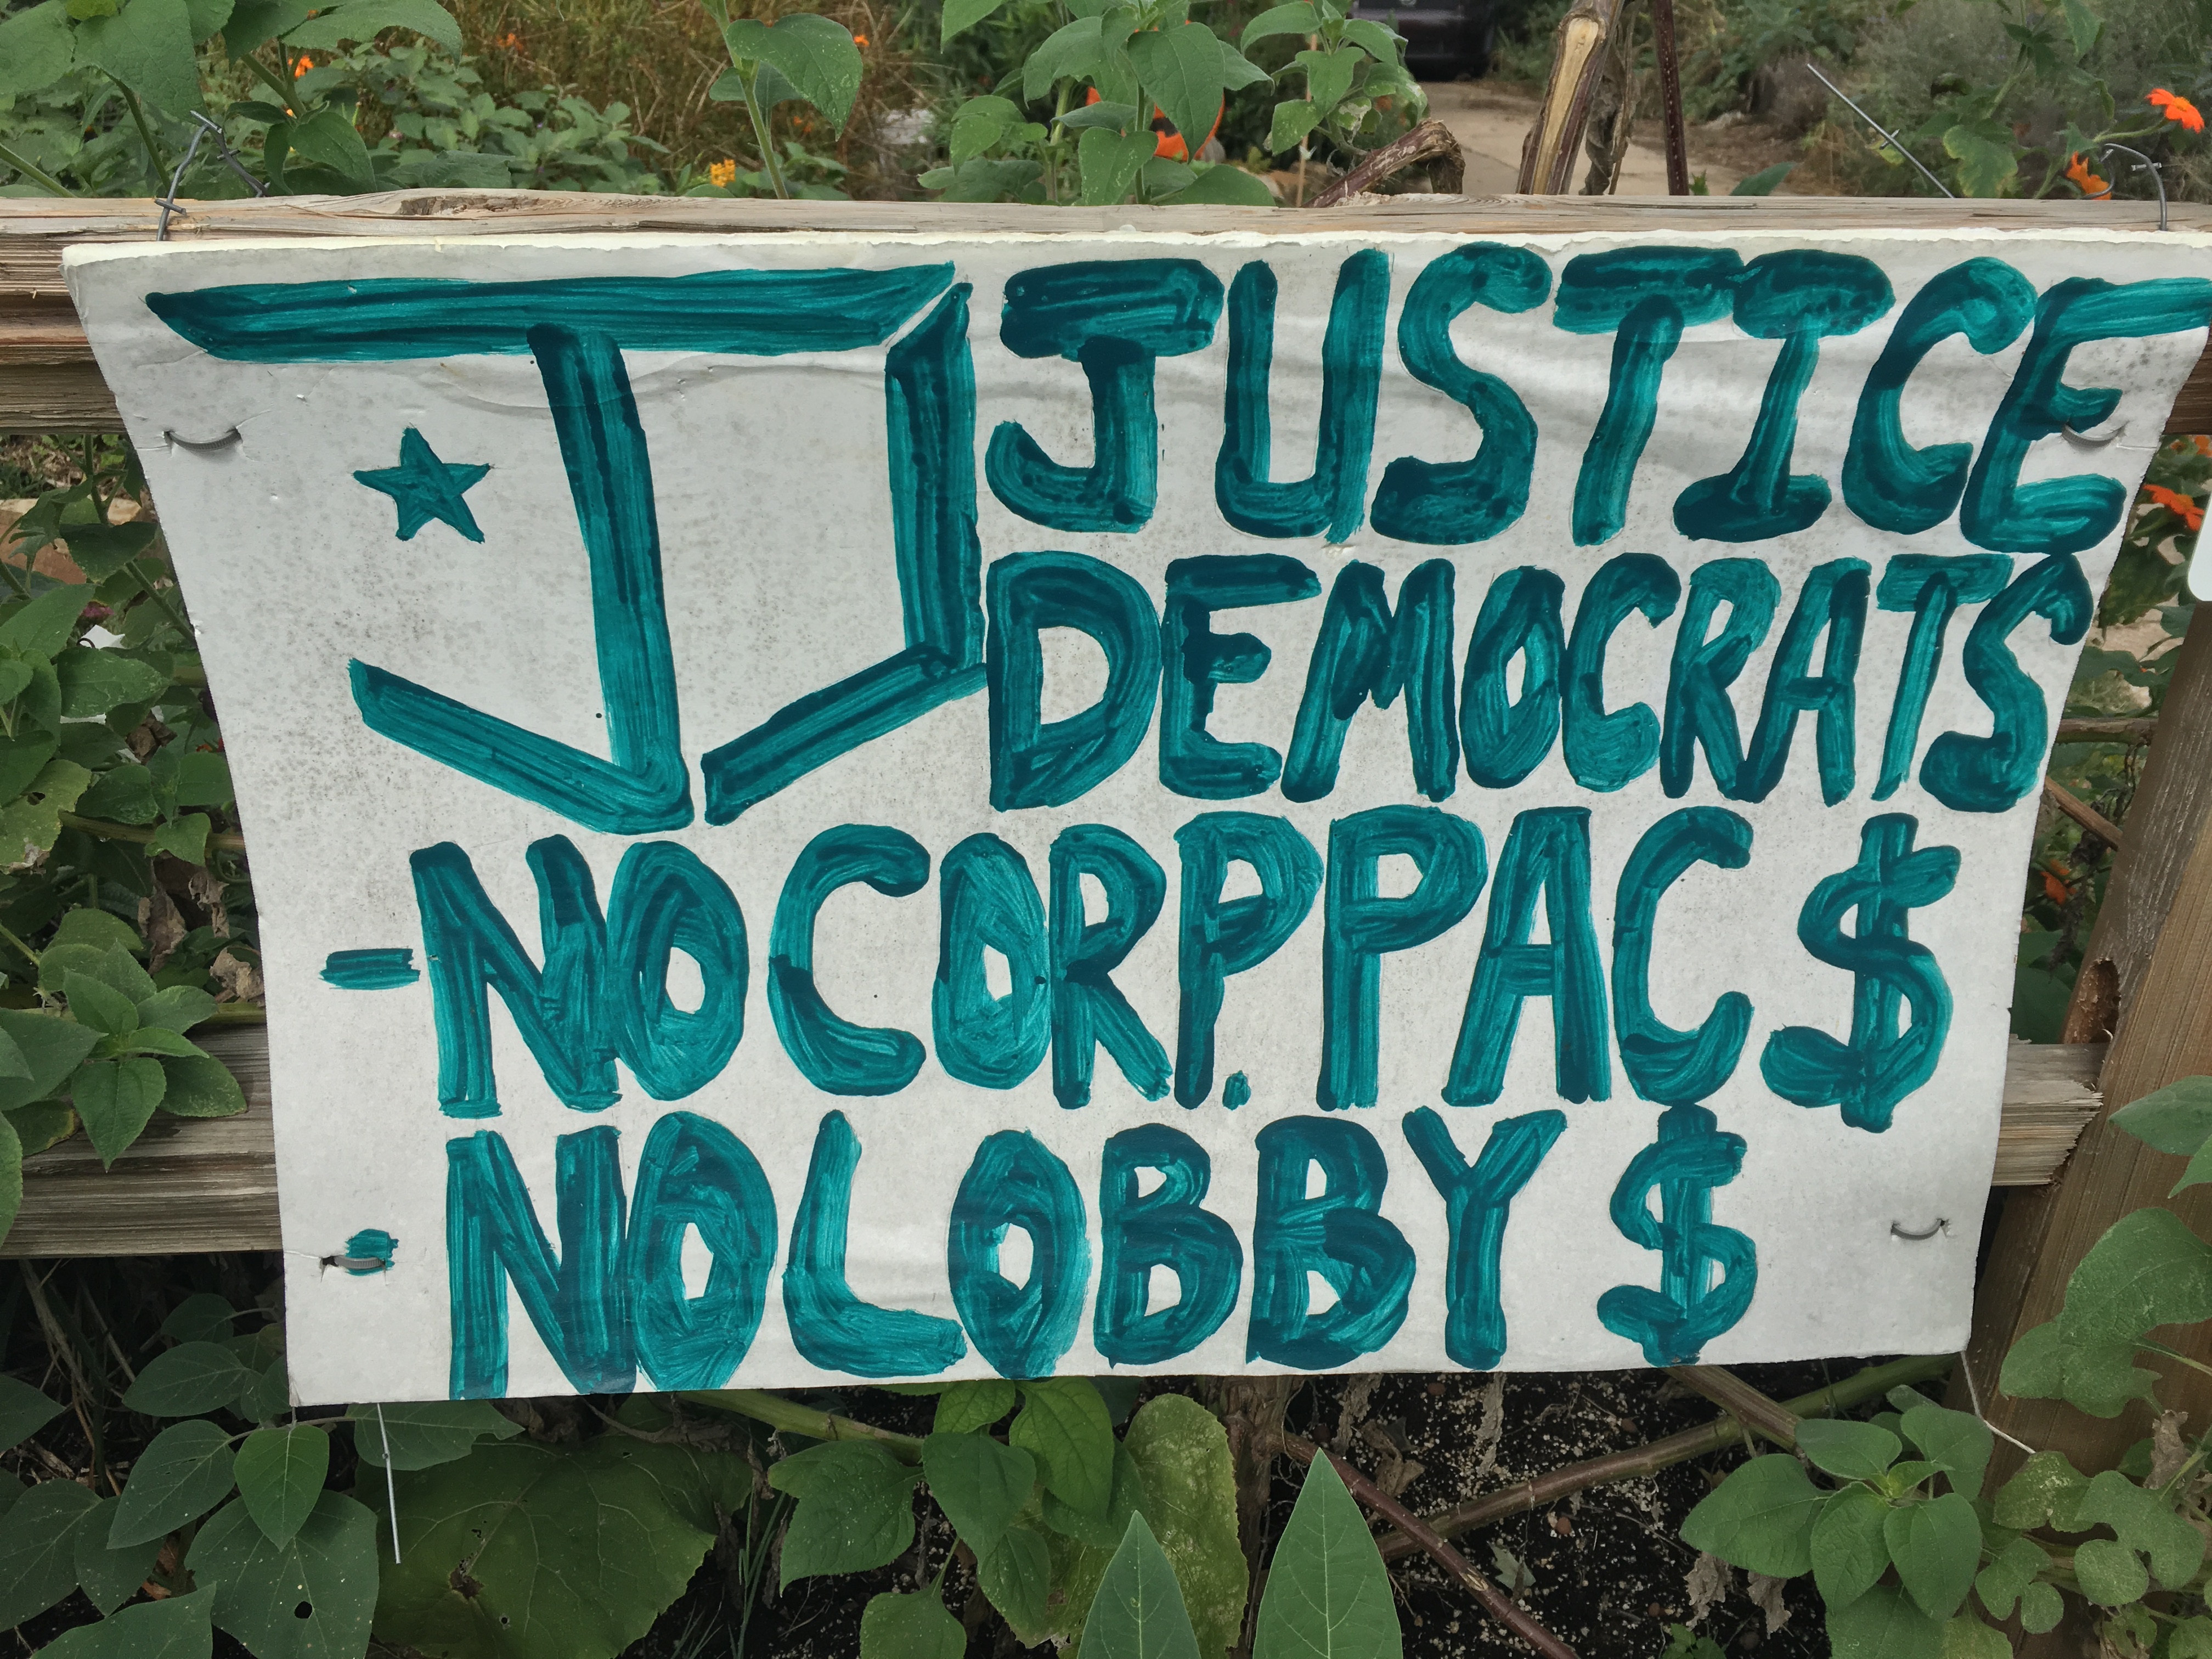 JD JUSTICE
DEMOCRATS
-NO CORP. PAC $
-NO LOBBY $